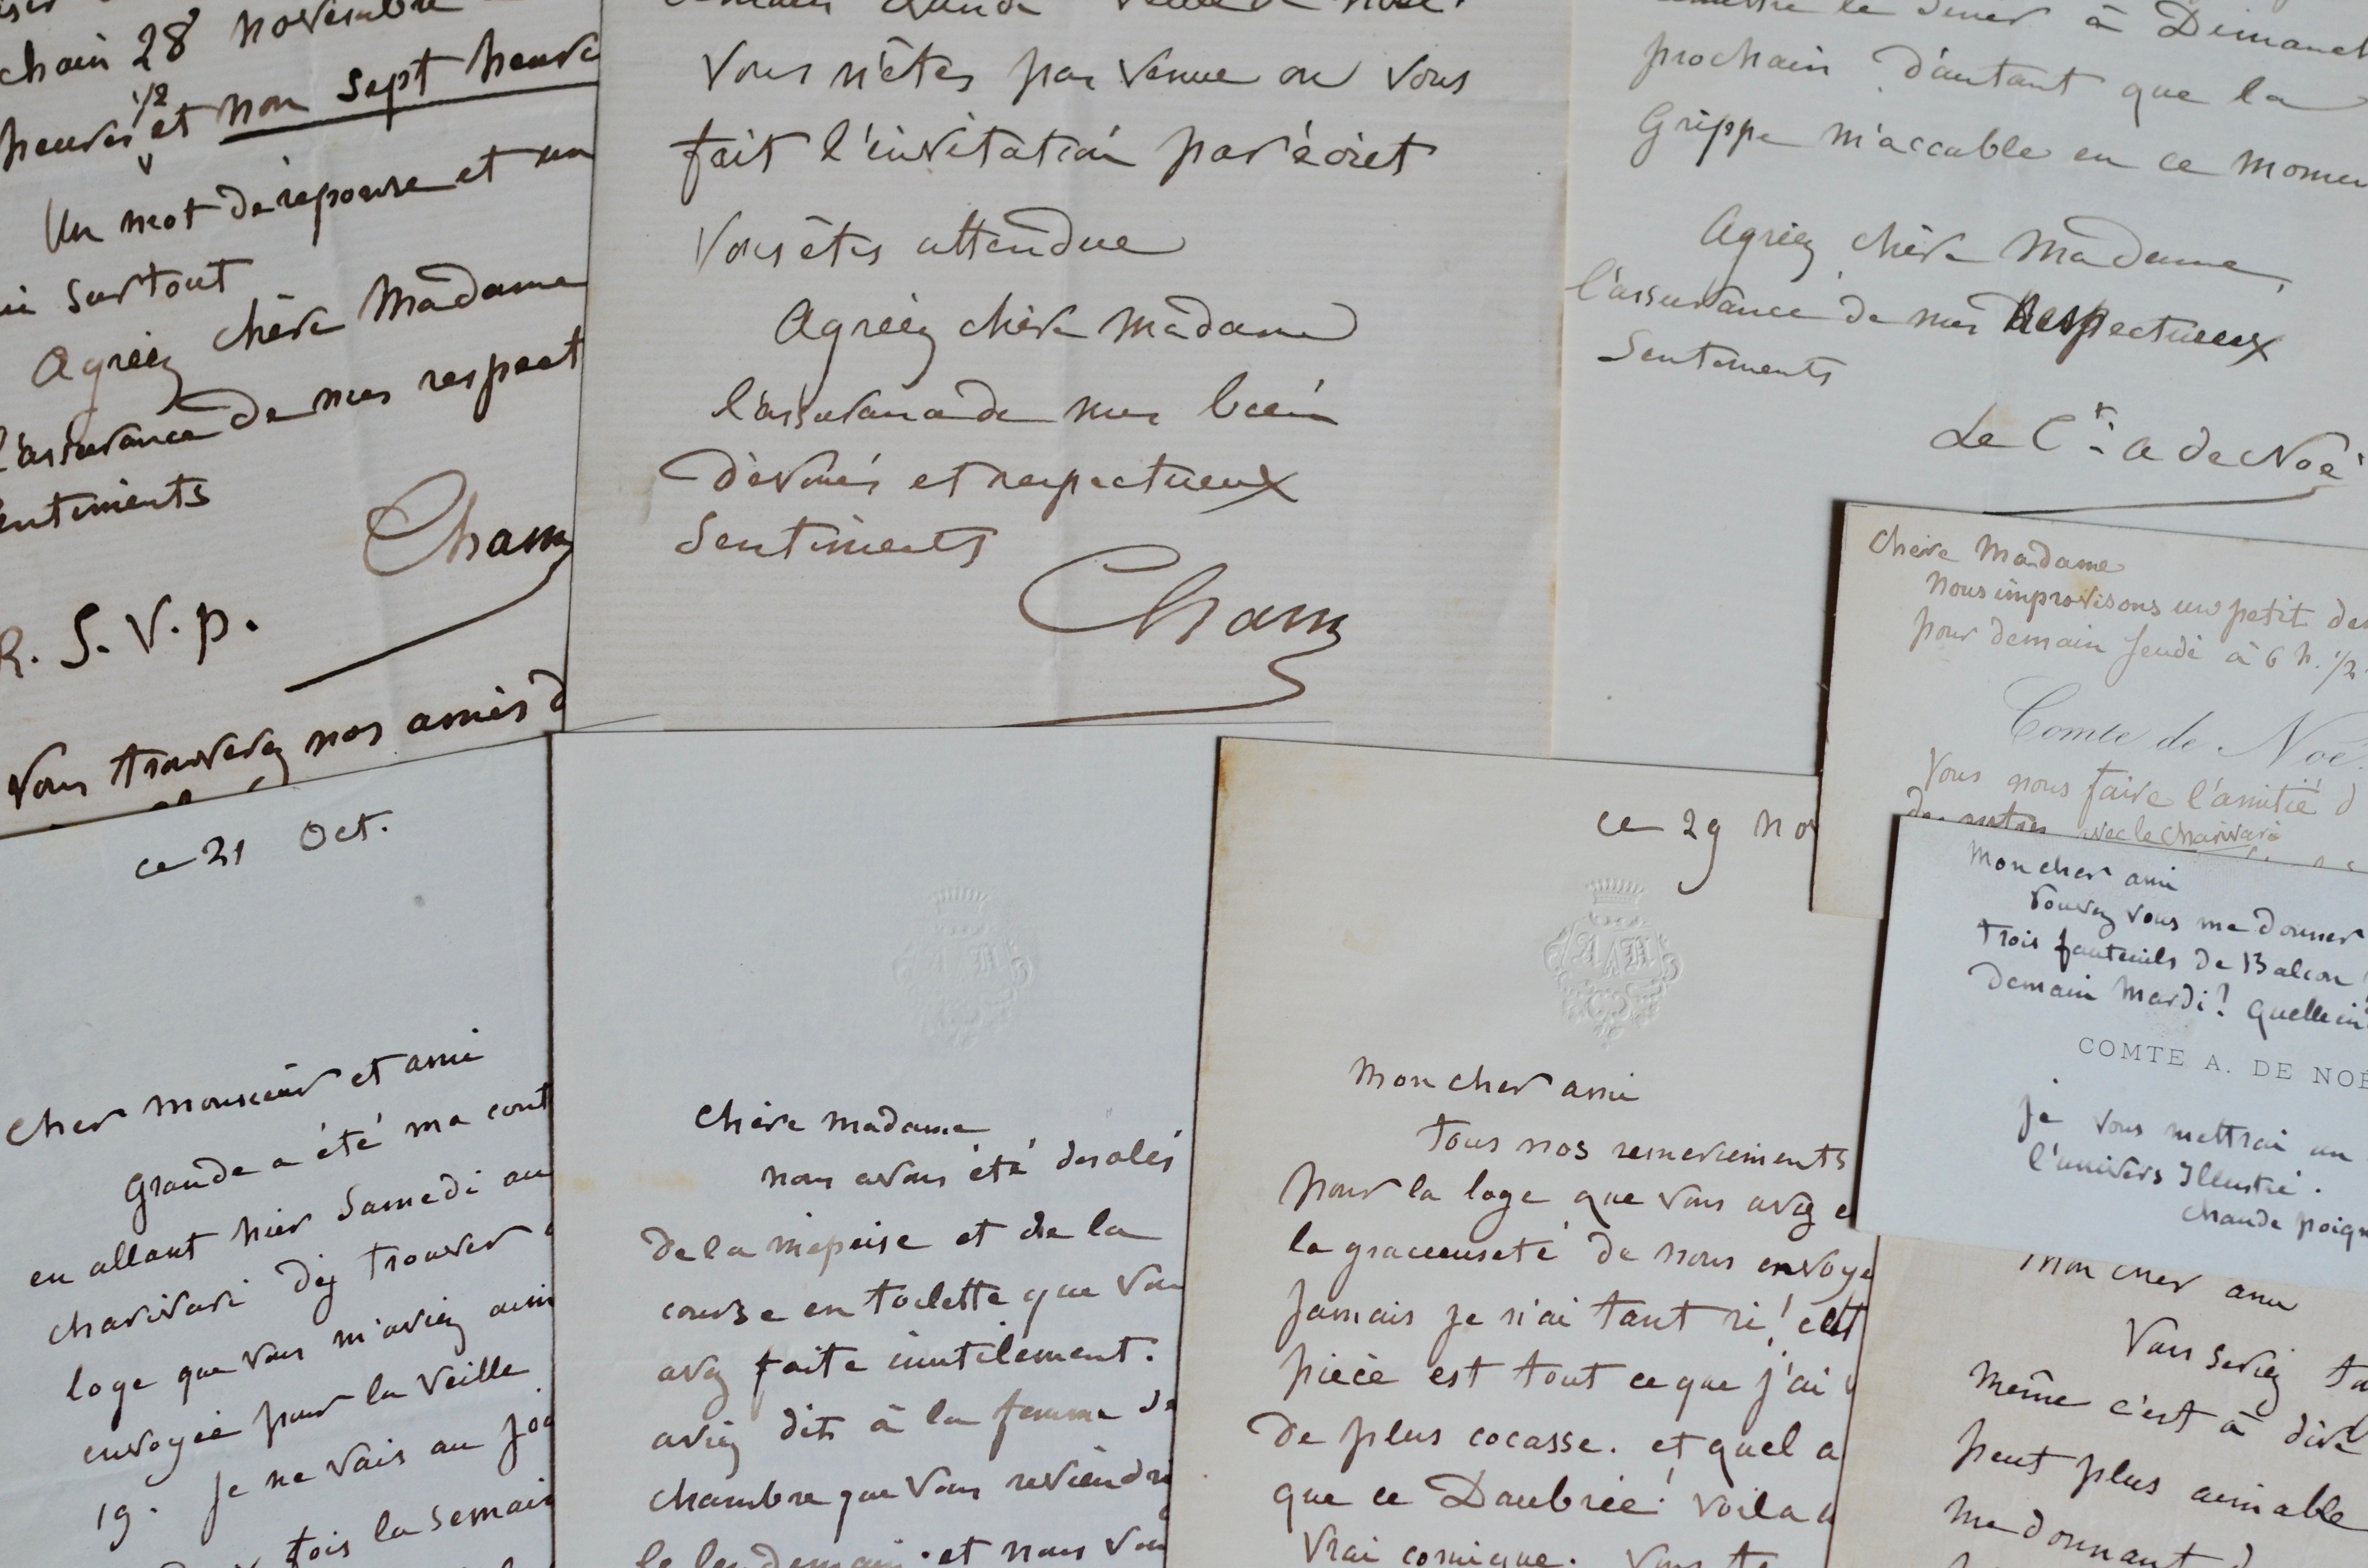 chain 28 novembre
heures 1/2 et non sept heure
Un mot de réponse et un
surtout
Agréez chère Madame
l'assurance de mes respect
entiments
Cham
R. S. V. p.
Vous trouverez nos amis d
Vous n'êtes pas venue on vous
fait l'invitation par écrit
Vous êtes attendue
Agréez chère Madame
l'assurance de mes bien
dévoués et respectueux
Sentiments
Cham
le diner à Dimanch
prochain d'autant que la
Grippe m'accable en ce momen
Agréez chère Madame,
l'assurance de mes Respectueux
Sentiments
Le Cte A de Noé
Chère Madame
Nous improvisons un petit
pour demain Jeudi à 6 h. 1/2
Comte de Noé.
Vous nous faire l'amitié d
des nôtres avec le charivari
Mon cher ami
Pouvez vous me donner
trois fauteuils de Balcon
Demain Mardi? Quelle
COMTE A. DE NOÉ
Je vous mettrai un
l'univers Illustré.
Chaude poign
ce 21 Oct.
Cher Monsieur et ami
Grande a été ma cont
en allant hier Samedi au
charivari d'y trouver
loge que vous m'aviez aim
envoyée pour la veille
19. Je ne vais au jo
fois la semain
Chère Madame
nous avons été désolés
de la méprise et de la
course en toilette que vou
avez faite inutilement.
aviez dit à la femme de
chambre que vous reviendri
le lendemain et nous vou
ce 29 no
A N
Mon cher ami
Tous nos remerciements
pour la loge que vous avez e
la gracieuseté de nous envoye
Jamais je n'ai tant ri! cett
pièce est tout ce que j'ai
de plus cocasse. et quel a
que ce Daubrée! Voilà
vrai comique.
Mon cher ami
Vous seriez
même c'est à dire
peut plus aimable
me donnant